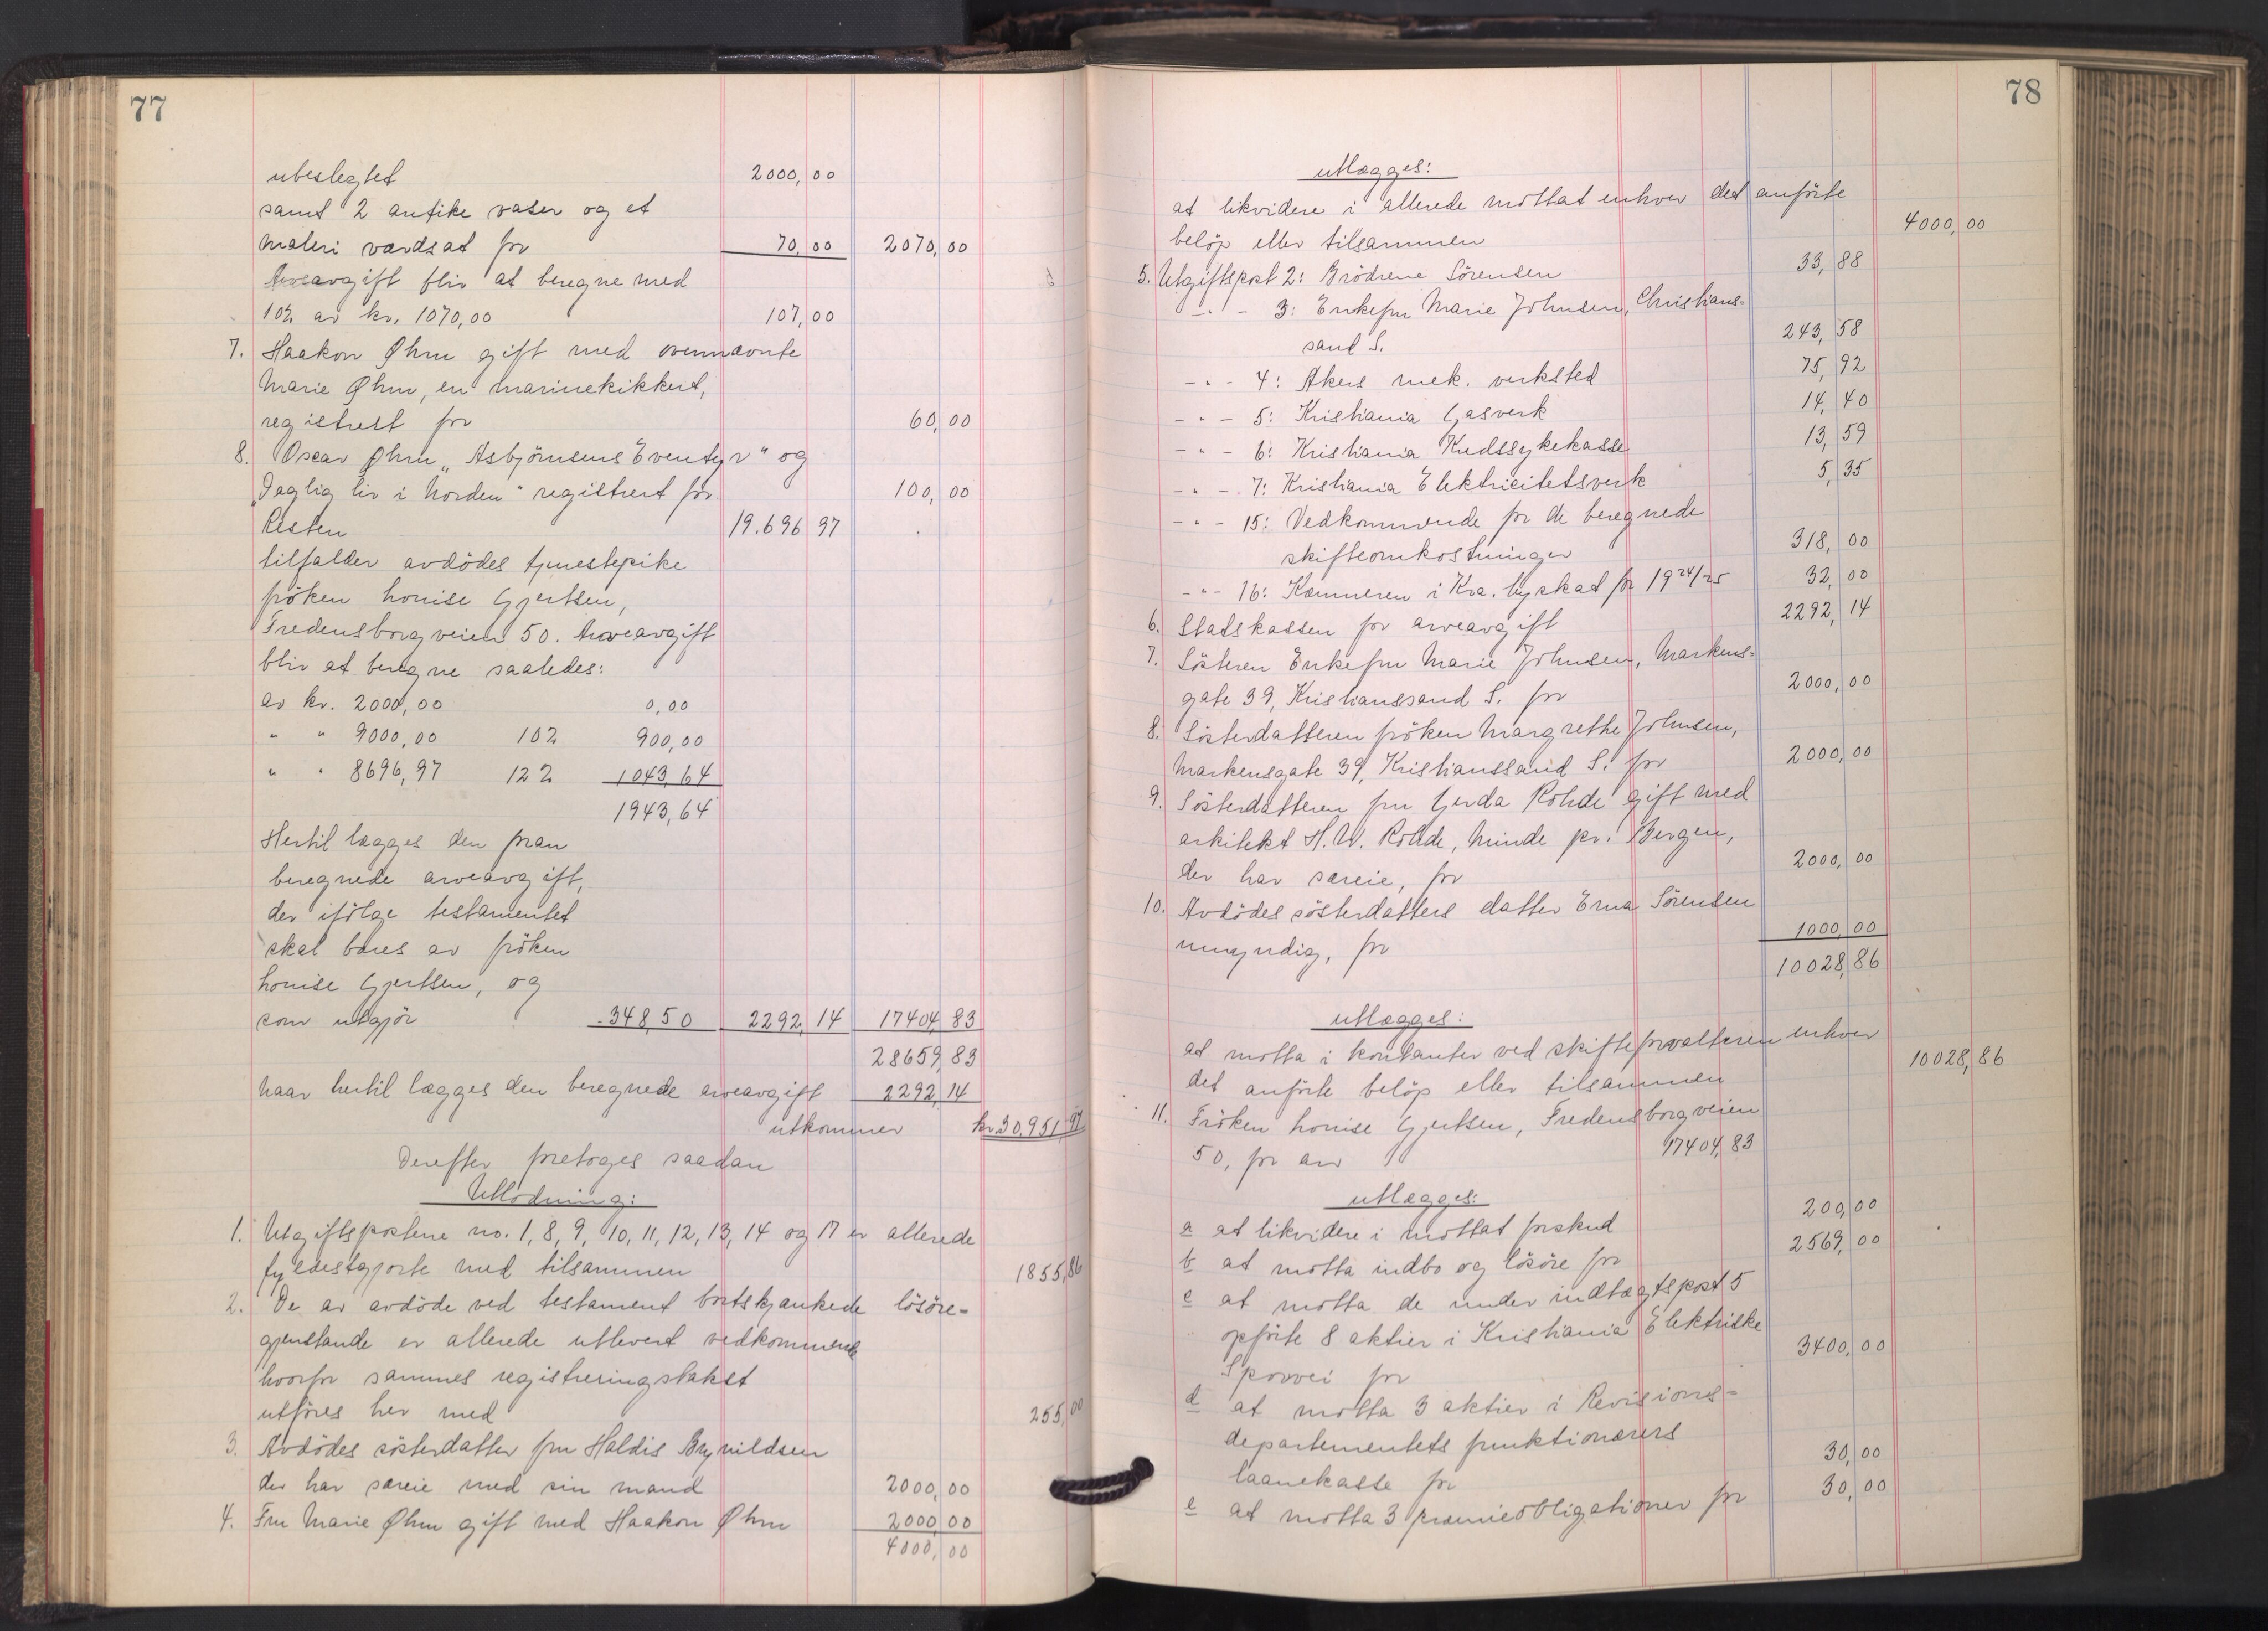 77
ubeslegtet 2000,00
samt 2 antike vaser og et
maleri værdsat for 70,00 2070,00
Arveavgift blir at beregne med
10% av kr. 1070,00 107,00
7. Haakon Øhm gift med ovennævnte
Marie Øhm, en marinekikkert,
registrert for 60,00
8. Oscar Øhm „Asbjörnsens Eventyr" og
„Daglig liv i Norden" registrert for 100,00
Resten 19.696 97
tilfalder avdödes tjenestepike
fröken Louise Gjertsen,
Fredensborgveien 50. Arveavgift
blir at beregne saaledes:
av kr. 2000,00 0,00
" " 9000,00 10% 900,00
" " 8696,97 12% 1043,64
1943,64
Hertil lægges den foran
beregnede arveavgift,
der ifölge testamentet
skal bæres av fröken
Louise Gjertsen, og
som utgjör 348,50 2292,14 17404,83
28659,83
Naar hertil lægges den beregnede arveavgift 2292,14
utkommer kr. 30.951 97
Derefter foretoges saadan
Utlodning:
1. Utgiftspostene no. 1, 8, 9, 10, 11, 12, 13, 14 og 17 er allerede
fyldestgjorte med tilsammen 1855,86
2. De av avdöde ved testament bortskjænkede lösöre-
gjenstande er allerede utlevert vedkommende
hvorfor sammes registreringstakst
utföres her med 255,00
3. Avdödes sösterdatter fru Haldis Brynildsen
der har særeie med sin mand 2000,00
4. Fru Marie Øhm gift med Haakon Øhm 2000,00
4000,00
78
utlægges:
at likvidere i allerede mottat enhver det anförte
belöp eller tilsammen 4000,00
5. Utgiftspost 2: Brödrene Sörensen 33,88
- " - 3: Enkefru Marie Johnsen, Christians-
sand S. 243,58
- " - 4: Akers mek. verksted 75,92
- " - 5: Kristiania Gasverk 14,40
- " - 6: Kristiania Kredssykekasse 13,59
- " - 7: Kristiania Elektricitetsverk 5,35
- " - 15: Vedkommende for de beregnede
skifteomkostninger 318,00
- " - 16: Kæmneren i Kra. byskat for 1924/25 32,00
6. Statskassen for arveavgift 2292,14
7. Sösteren Enkefru Marie Johnsen, Markens-
gate 39, Kristianssand S. for 2000,00
8. Sösterdatteren fröken Margrethe Johnsen,
Markensgate 39, Kristianssand S. for 2000,00
9. Sösterdatteren fru Gerda Rohde gift med
arkitekt H.W. Rohde, Minde pr. Bergen,
der har særeie, for 2000,00
10. Avdödes sösterdatters datter Erna Sörensen
umyndig, for 1000,00
10028,86
utlægges:
at motta i kontanter ved skifteforvalteren enhver
det anförte belöp eller tilsammen 10028,86
11. Fröken Louise Gjertsen, Fredensborgveien
50, for arv 17404,83
utlægges:
a at likvidere i mottat forskud 200,00
b at motta indbo og lösöre for 2569,00
c at motta de under indtægtspost 5
opförte 8 aktier i Kristiania Elektriske
Sporvei for 3400,00
d at motta 3 aktier i Revisions-
departementets funktionærers
laanekasse for 30,00
e at motta 3 præmieobligationer for 30,00